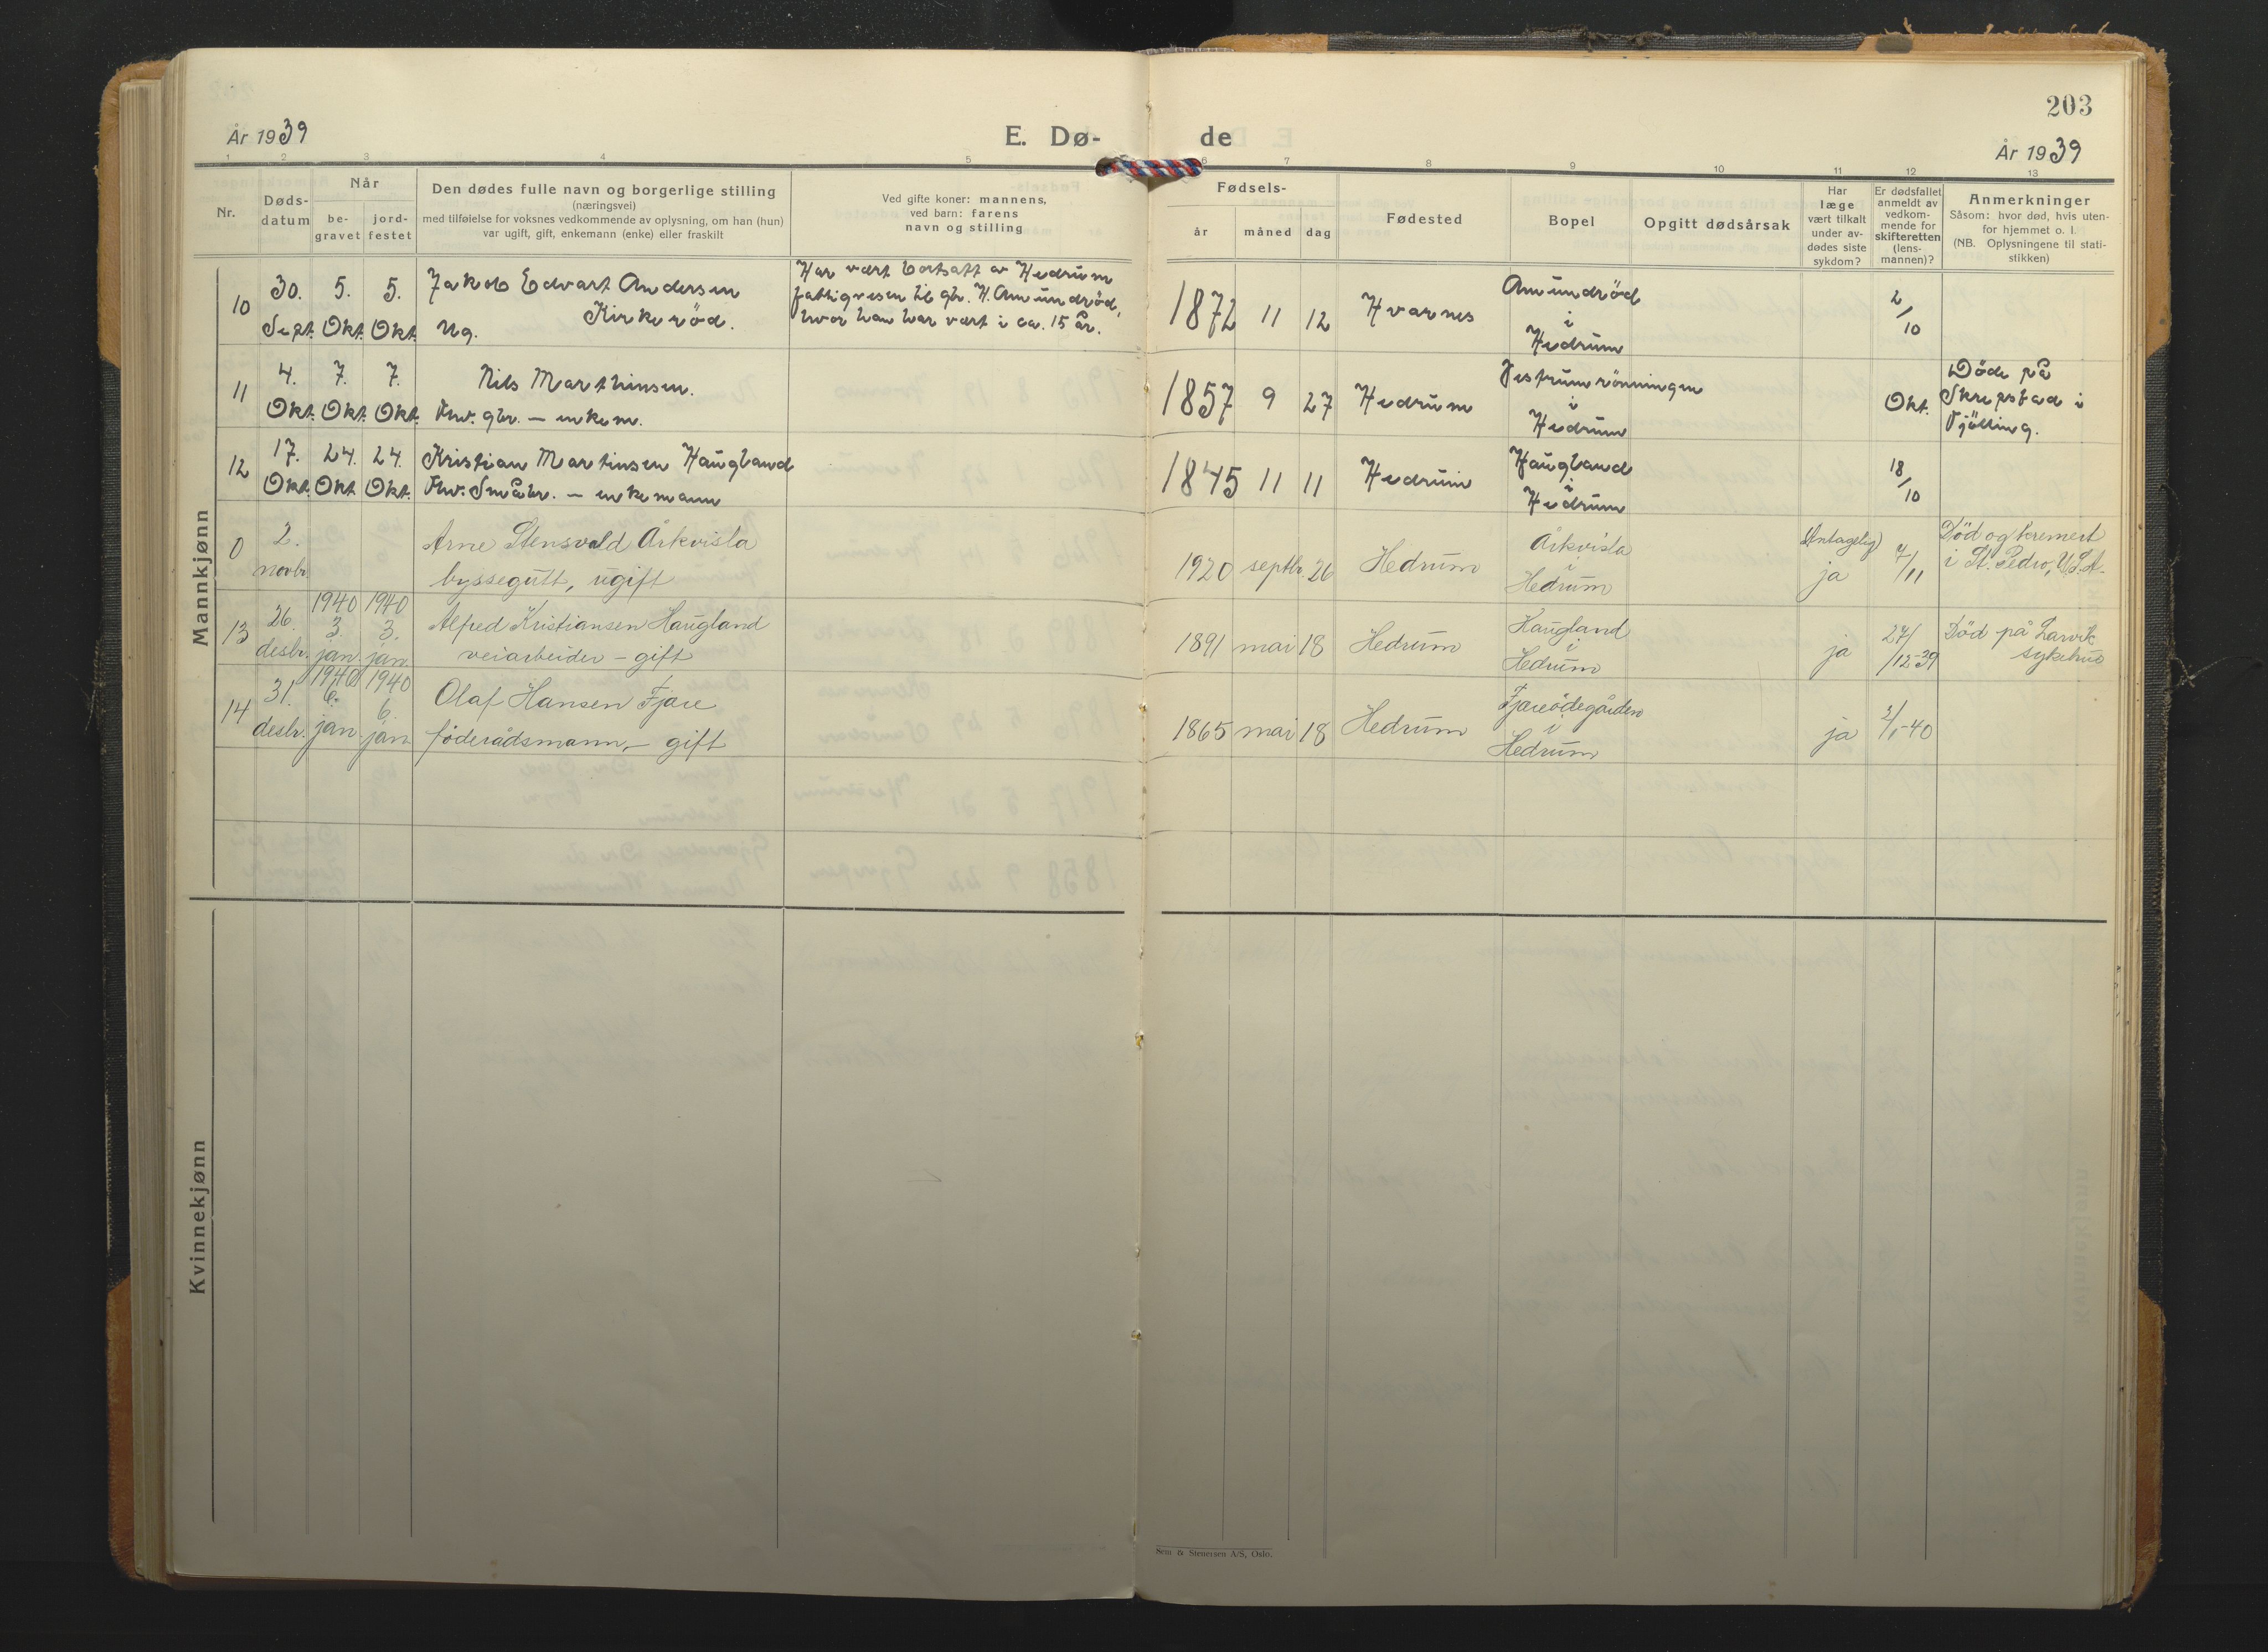 203
År 1939
E. Dø-
de
År 1939
1 2 3 4 5 6 7 8 9 10 11 12 13
Nr.
Døds-
datum
Når
be-
gravet
jord-
festet
Den dødes fulle navn og borgerlige stilling
(næringsvei)
med tilføielse for voksnes vedkommende av oplysning, om han (hun)
var ugift, gift, enkemann (enke) eller fraskilt
Ved gifte koner: mannens,
ved barn: farens
navn og stilling
Fødsels-
år måned dag
Fødested
Bopel
Opgitt dødsårsak
Har
læge
vært tilkalt
under av-
dødes siste
sykdom?
Er dødsfallet
anmeldt av
vedkom-
mende for
skifteretten
(lens-
mannen)?
Anmerkninger
Såsom: hvor død, hvis uten-
for hjemmet o. l.
(NB. Oplysningene til stati-
stikken)
Mannkjønn
10
30.
Sept.
5.
Okt.
5.
Okt.
Jakob Edvart Andersen
Ug. Kirkerød.
Har vært bortsatt av Hedrum
fattigvesen til gbr. H. Amundrød,
hvor han har vært i ca. 15 år.
1872 11 12
Hvarnes
Amundrød
i
Hedrum
2/10
11
4.
Okt.
7.
Okt.
7.
Okt.
Nils Marthinsen.
Fhv. gbr. – enkem.
1857 9 27
Hedrum
Vestrumrønningen
i
Hedrum
Okt.
Døde på
Skrepstad i
Tjølling.
12
17.
Okt.
24.
Okt.
24.
Okt.
Kristian Martinsen Haugland
Fhv. Småbr. – enkemann
1845 11 11
Hedrum
Haugland
i
Hedrum
18/10
0
2.
novbr.
Arne Stensvold Årkvisla
byssegutt, ugift
1920 septbr. 26
Hedrum
Årkvisla
i
Hedrum
(Antagelig)
ja
7/11
Død og kremert
i St. Pedro, U.S.A.
13
26.
desbr.
1940
3.
jan.
1940
3.
jan.
Alfred Kristiansen Haugland
veiarbeider – gift
1891 mai 18
Hedrum
Haugland
i
Hedrum
ja
27/12-39
Død på Larvik
sykehus
14
31.
desbr.
1940
6.
jan
1940
6.
jan
Olaf Hansen Fjære
føderådsmann, – gift
1865 mai 18
Hedrum
Fjæreødegården
i
Hedrum
ja
2/1-40
Kvinnekjønn
Sem & Stenersen A/S, Oslo.